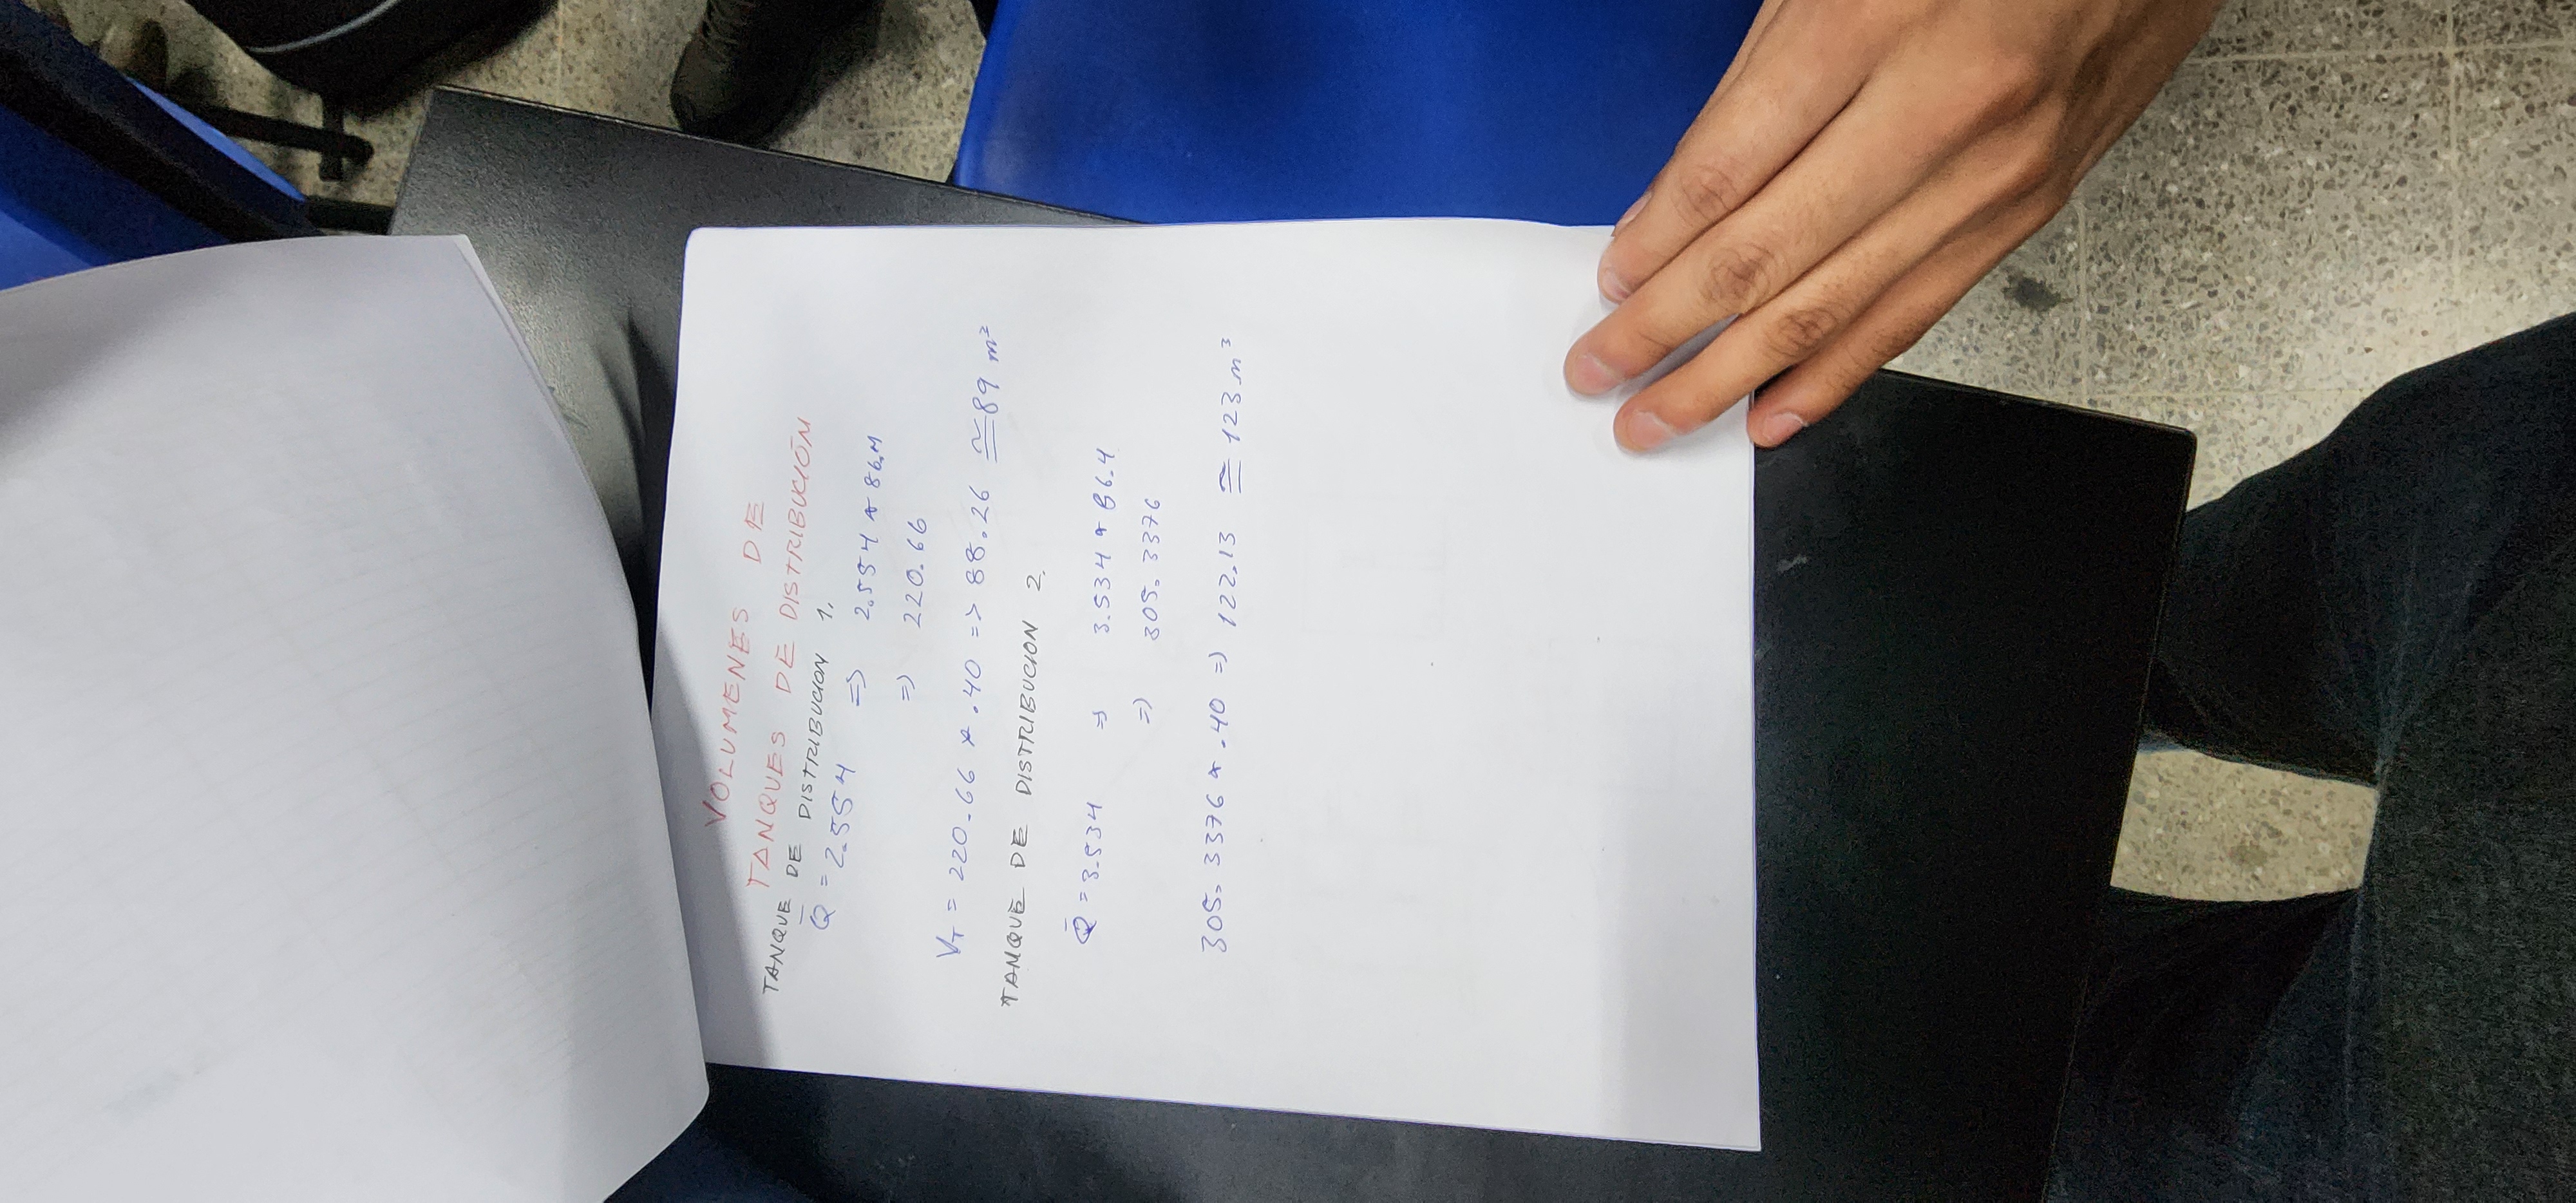 VOLUMENES DE
TANQUES DE DISTRIBUCIÓN
TANQUE DE DISTRIBUCION 1.
Q̄ = 2.554 => 2.554 * 86.4
=> 220.66
V_T = 220.66 * .40 => 88.26 ≅ 89 m³
TANQUE DE DISTRIBUCION 2.
Q̄ = 3.534 => 3.534 * 86.4
=> 305.3376
305.3376 * .40 => 122.13 ≅ 123 m³